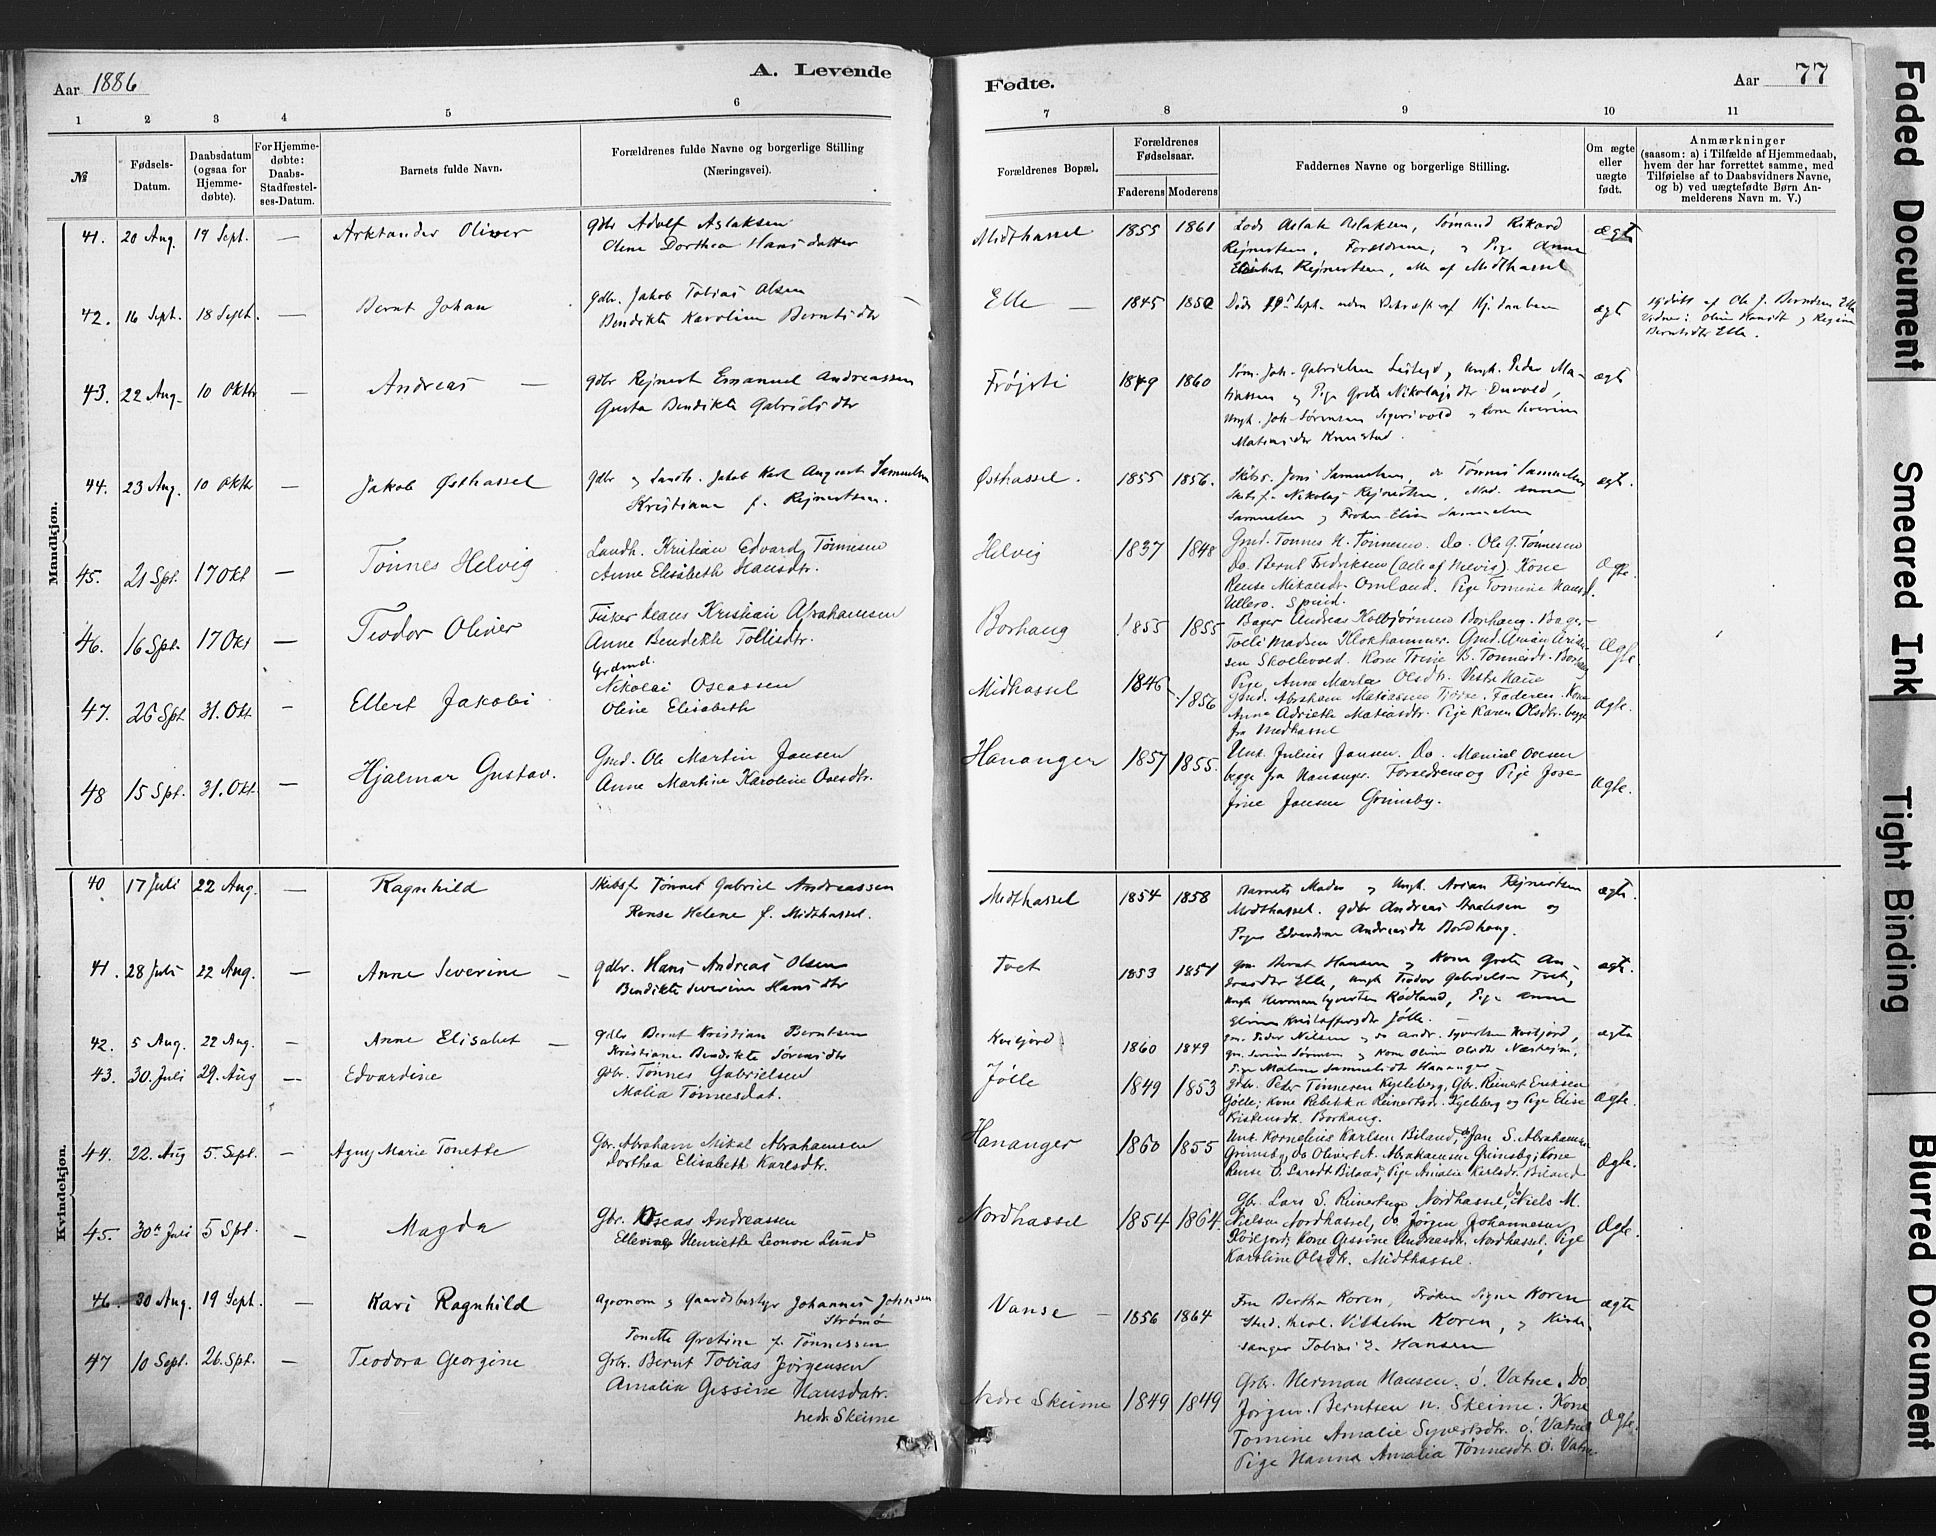 Aar 1886
A. Levende
Fødte.
Aar 77
1 2 3 4 5 6 7 8 9 10 11
№
Fødsels-
Datum.
Daabsdatum
(ogsaa for
Hjemme-
døbte).
For Hjemme-
døbte:
Daabs-
Stadfæstel-
ses-Datum.
Barnets fulde Navn.
Forældrenes fulde Navne og borgerlige Stilling
(Næringsvei).
Forældrenes Bopæl.
Forældrenes
Fødselsaar.
Faderens Moderens
Faddernes Navne og borgerlige Stilling.
Om ægte
eller
uægte
født.
Anmærkninger
(saasom: a) i Tilfælde af Hjemmedaab,
hvem der har forrettet samme, med
Tilføielse af to Daabsvidners Navne,
og b) ved uægtefødte Børn An-
melderens Navn m. V.)
Mandkjøn.
41. 20 Aug. 19 Sept. — Arktander Oliver
Gdbr Adolf Aslaksen
Oline Dorthea Hansdatter
Midthassel 1855 1861
Lods Aslak Aslaksen, Sømand Rikard
Rejnertsen, Forældrene, og Pige Anna
Elisabet Rejnertsen, alle af Midthassel
ægte
42. 16 Sept. 18 Sept. — Bernt Johan
Gdbr. Jakob Tobias Olsen
Bendikte Karoline Berntsdtr
Elle — 1845 1850
Døde 19de Sept. uden Bekræft. af Hj.daaben
ægt
Hjdøbt af Ole J. Berntsen Elle
Vidner: Oline Hansdt og Regine
Berntsdtr Elle.
43. 22 Aug. 10 Oktbr — Andreas —
Gdbr Rejnert Emanuel Andreassen
Gusta Bendikte Gabrielsdtr
Frøjsti 1849 1860
Søm. Joh. Gabrielsen, Ungk. Peder Ma-
thiassen og Pige Grete Nikolajsdtr
Ungk. Joh. Sørensen Sigersvold og Kone Severine
Matiasdtr
ægt
44. 23 Aug. 10 Oktbr — Jakob Østhassel
Gdbr og Landh. Jakob Karl August Samuelsen
Kristiane f. Rejnertsen.
Østhassel. 1855 1856.
Skibsr. Jons Samuelsen, do Tønnes Samuelsen
Skibsf. Nikolaj Rejnertsen, Mad. Anna
Samuelsen og Frøken Elise Samuelsen
ægt.
45. 21 Spt. 17 Okt — Tønnes Helvig
Landh. Kristian Edvard Tønnesen
Anne Elisabeth Hansdtr.
Helvig 1837 1848
Gmd. Tønnes N. Tønnesen. Do. Ole G. Tønnesen
Do. Bernt Fredriksen (alle af Helvig). Kone
Rense Mikalsdtr. Omland. Pige Tomine Hansd.
Ullerø. Spind.
Ægte.
46. 16 Spt. 17 Okt — Teodor Oliver
Fisker Hans Kristian Abrahamsen
Anne Bendikte Tollisdtr.
Borhaug 1855 1855
Bager Andreas Kolbjørnsen Borhaug. Bager
Tolli Madsen Klokhammer. Gmd. Arian Arian-
sen Skollevold. Kone Trine B. Tønnesdtr. Borhaug
Pige Anne Marta Olsdtr. Vestre Haue
Ægte.
47. 26 Spt 31. Okt — Ellert Jakobi
Grdmd.
Nikolai Oseassen
Oline Elisabeth
Midhassel 1846 1856
Gmd. Abraham Matiassen Tjøre. Faderen. Kone
Anne Adriette Matiasdtr. Pige Karen Olsdtr. begge
fra Midhassel
Ægte.
48 15 Spt. 31. Okt — Hjalmar Gustav.
Gmd. Ole Martin Jansen
Anne Martine Karoline Ovesdtr.
Hananger 1857 1855.
Unt. Julius Jansen. Do. Maniel Ovesen
begge fra Hananger. Forældrene og Pige Jose-
fine Jansen Grimsby.
Ægte.
Kvindekjøn.
40 17 Juli 22 Aug. — Ragnhild
Skibsf Tønnes Gabriel Andreassen
Rense Helene f. Midthassel.
Midthassel 1854 1858
Barnets Moder og Ungk. Arian Rejnertsen
Midthassel. Gdbr Andreas Aanlesen og
Pige Edvardine Andreasdtr Bordhaug.
ægt.
41. 28 Juli 22 Aug. — Anne Severine —
Gdbr. Hans Andreas Olsen
Bendikte Severine Hansdtr
Tvet 1853 1851
Gm. Bernt Hansen og Kone Grete An-
dreasdtr Elle, Ungk Teodor Gabrielsen Tvet,
Ungk Herman Syvertsen Rødland, Pige Anna
Elisene Kristoffersdtr Jølle. —
ægt.
42. 5 Aug. 22 Aug. — Anne Elisabet —
Gdbr Bernt Kristian Berntsen
Kristiane Bendikte Sørensdtr
Kviljord 1860 1849
Gm. Peder Nielsen og do Andr. Syvertsen Kviljord,
Gm. Søren Sørensen og Kone Oline Olsdtr Næshejm,
Pige Maline Samuelsdt Hananger
ægte
43. 30. Juli 29. Aug — Edvardine
Gbr. Tønnes Gabrielsen
Malia Tønnesdat.
Jølle 1849 1853
Gbr. Peder Tønnesen Kjelleberg, Gbr. Reinert Eriksen
Jølle; Kone Rebekka Reinertsdr. Kjelleberg og Pige Elise
Kristensdt. Borhaug.
Ægte.
44. 22. Aug 5. Sept. — Agny Marie Tonette
Gbr. Abraham Mikal Abrahamsen
Dorthea Elisabeth Karlsdtr.
Hananger 1860 1855
Unt. Kornelius Karlsen Biland, do Jan S. Abrahamsen
Grimsby, do Olivert A. Abrahamsen Grimsby; Kone
Rense O. Larsdt Biland, Pige Amalie Karlsdtr. Biland
Ægte.
45. 30te Juli 5 Spt. — Magda
Gbr. Oseas Andreassen
Ellevine Henriette Leonore Lund
Nordhassel 1854 1864.
Gbr. Lars S. Reinertsen Nordhassel, do Niels M.
Nielsen Nordhassel, do Jørgen Johannesen
Kviljord; Kone Gessine Andreasdtr. Nordhassel, Pige
Karoline Olsdtr. Midthassel.
Ægte.
46. 30 Aug. 19 Sept. — Kari Ragnhild
Agronom og Gaardsbestyr Johannes Johnsen
Strømø
Tonette Gretine f. Tønnessen
Vanse — 1856 1864
Fru Bertha Koren, Frøken Signe Koren
Stud. theol. Vilhelm Koren, og Kirke-
sanger Tobias E. Hansen
ægte
47 10 Sept. 26. Spt. — Teodora Georgine
Grbr. Bernt Tobias Jørgensen
Amalia Gessine Hansdatr.
nedr. Skeime
Nedre Skeime 1849 1849
Grbr. Herman Hansen. ö. Vatne. Do
Jørgen Berntsen n. Skeime. Kone
Tomine Amalie Syvertsdtr. ö. Vatne
Pige Hanna Amalia Tønnesdt. ö. Vatne
Ægte.
Faded Document
Smeared Ink
Tight Binding
Blurred Document